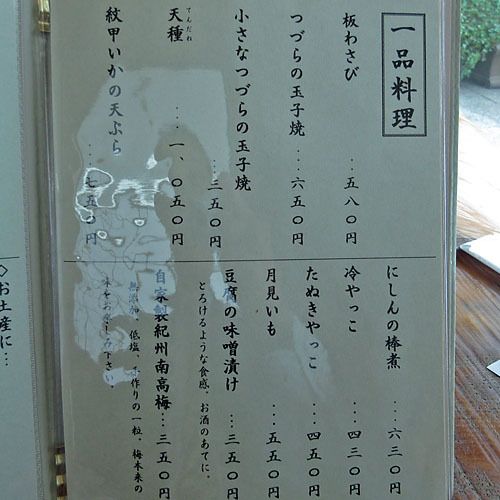 一品料理
板わさび ...五八〇円
つづらの玉子焼 ...六五〇円
小さなつづらの玉子焼 ...三五〇円
天種 ......一、〇五〇円
てんだね
紋甲いかの天ぷら ...七五〇円
にしんの棒煮 ...六三〇円
冷やっこ ...四三〇円
たぬきやっこ ...四五〇円
月見いも ...五五〇円
豆腐の味噌漬け ...三五〇円
とろけるような食感。お酒のあてに。
自家製紀州南高梅...三五〇円
無添加、低塩、手作りの一粒。梅本来の
味をお楽しみ下さい。
◇お土産に...